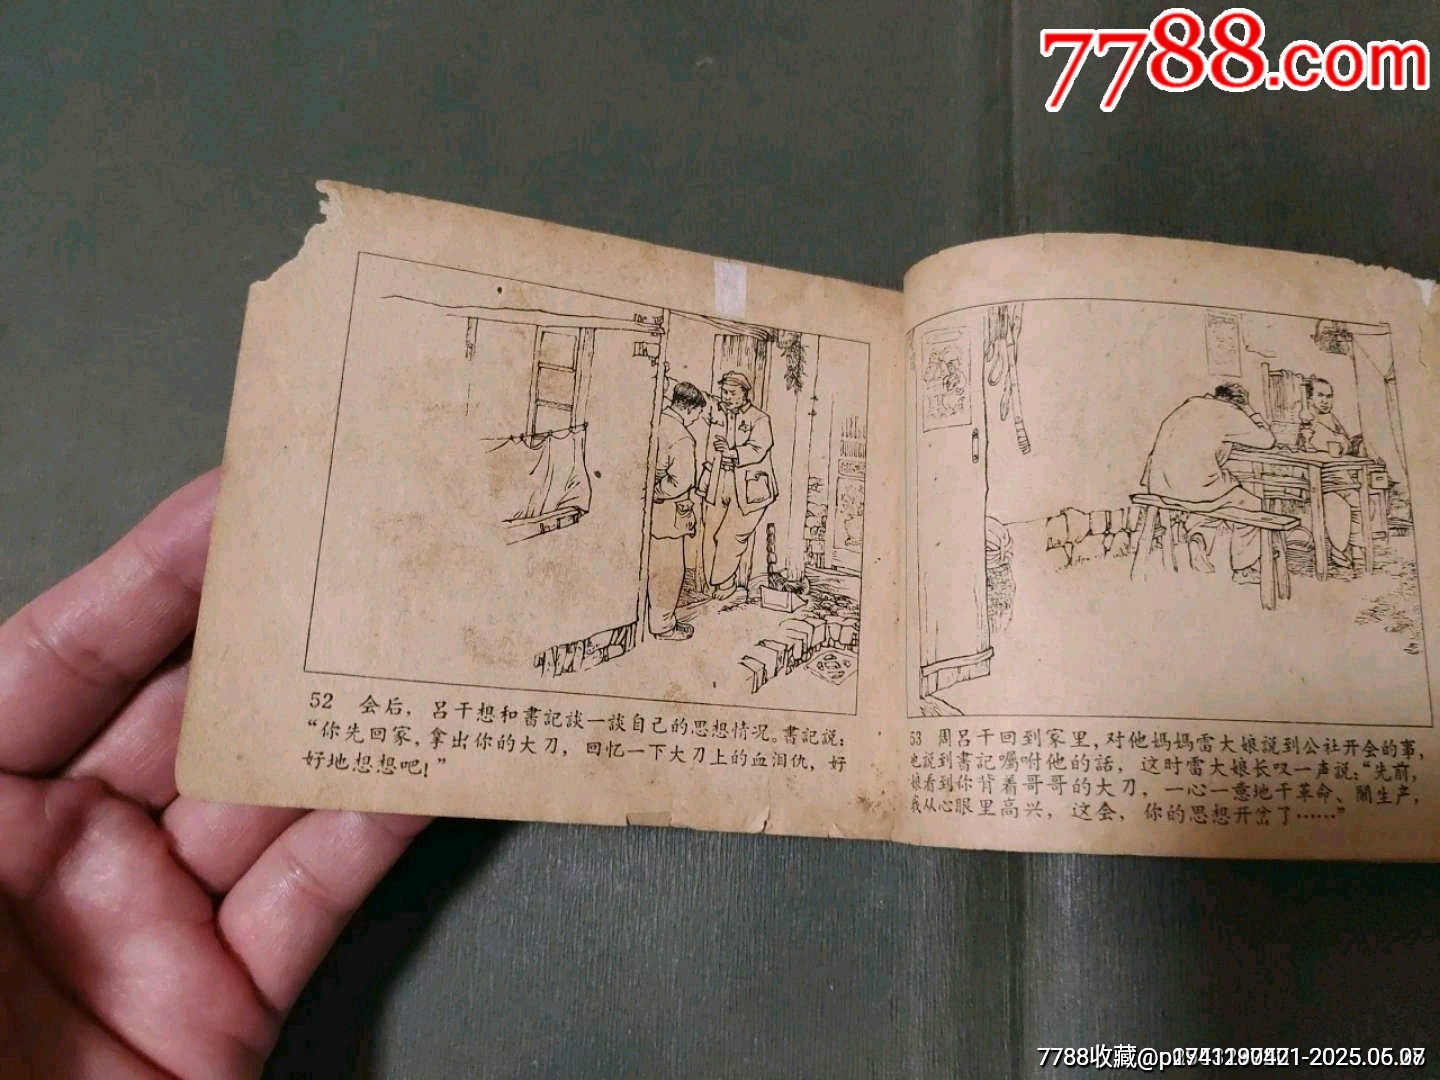 7788.com
52 会后，吕干想和書記談一談自己的思想情况。書記説：
“你先回家，拿出你的大刀，回忆一下大刀上的血泪仇，好
好地想想吧！”
53 周吕干回到家里，对他媽媽雷大娘説到公社开会的事，
也説到書記囑咐他的話，这时雷大娘长叹一声説：“先前，
娘看到你背着哥哥的大刀，一心一意地干革命、鬧生产，
我从心眼里高兴，这会，你的思想开岔了……”
7788收藏